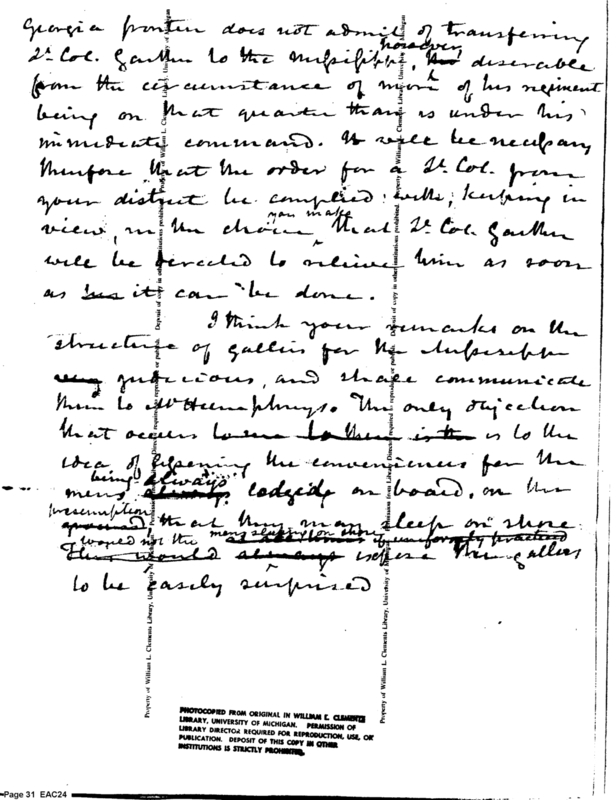 Georgia frontier does not admit of transferring
Lt. Col. Gaither to the Mississippi, however desireable
from the circumstance of more of his regiment
being on that quarter than is under his
immediate command. It will be necessary
therefore that the order for a Lt. Col. from
your district be complied with; keeping in
view, in the choice you make that Lt. Col. Gaither
will be directed to relieve him as soon
as it can be done.
I think your remarks on the
structure of gallies for the Mississippi
judicious, and shall communicate
them to Mr Humphrys. The only objection
that occurs is to the
idea of lessening the conveniences for the
mens being always lodged on board, on the
presumption that they may sleep on shore.
would not the mens sleeping on shore if uniformly practiced
expose the gallies
to be easily surprised
Property of William L. Clements Library, University of Michigan
Deposit of copy in other institutions prohibited.
PHOTOCOPIED FROM ORIGINAL IN WILLIAM L. CLEMENTS
LIBRARY, UNIVERSITY OF MICHIGAN. PERMISSION OF
LIBRARY DIRECTOR REQUIRED FOR REPRODUCTION, USE, OR
PUBLICATION. DEPOSIT OF THIS COPY IN OTHER
INSTITUTIONS IS STRICTLY PROHIBITED.
Page 31 EAC24